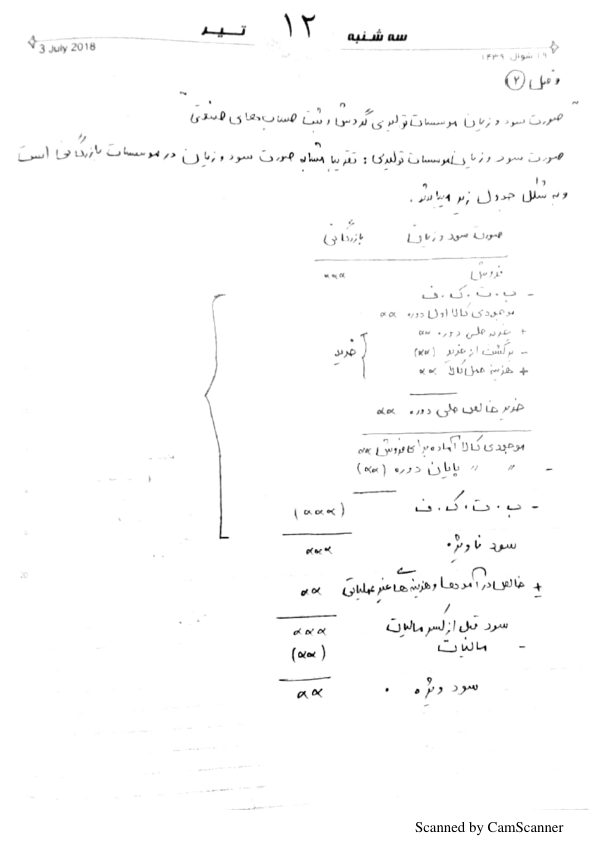 سه شنبه ۱۲ تیر
3 July 2018
۱۹ شوال ۱۴۳۹
فصل (۲)
"صورت سود و زیان موسسات تولیدی گردش و ثبت حساب های صنعتی"
صورت سود و زیان موسسات تولیدی : تقریبا مشابه صورت سود و زیان در موسسات بازرگانی است
و به شکل جدول زیر میباشد.
صورت سود و زیان بازرگانی
فروش ×××
- ب . ت . ک . ف
موجودی کالا اول دوره ××
+ خرید طی دوره ××
- برگشت از خرید (××)
+ هزینه حمل کالا ××
خرید
خرید خالص طی دوره ××
موجودی کالا آماده برای فروش ××
- " " پایان دوره (××)
- ب . ت . ک . ف (×××)
سود ناویژه ×××
± خالص درآمدها و هزینه های غیر عملیاتی ××
سود قبل از کسر مالیات ×××
- مالیات (××)
سود ویژه ××
Scanned by CamScanner